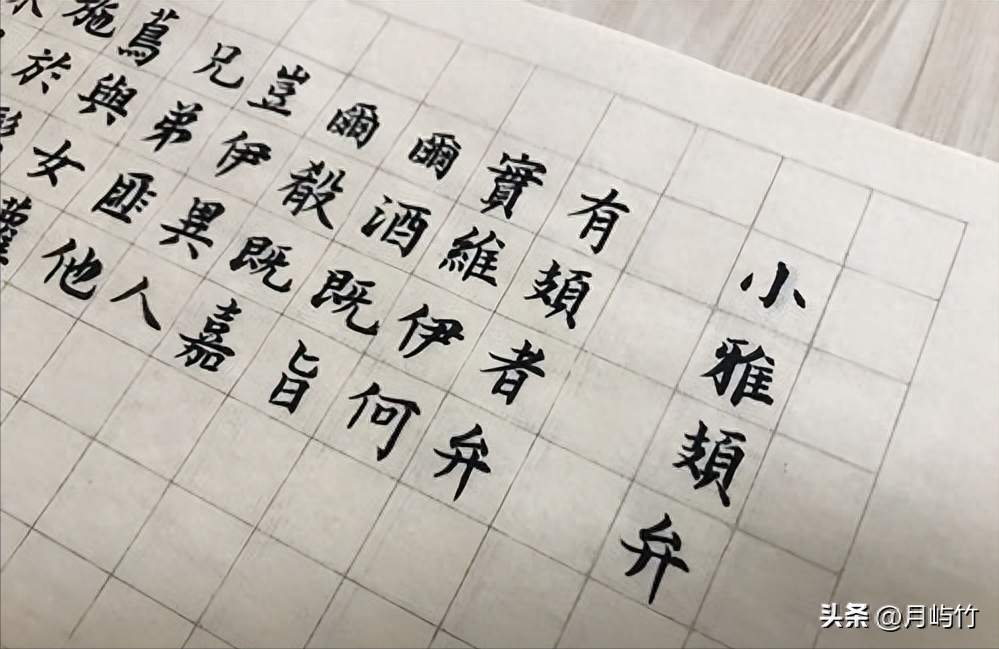 小雅頍弁
有頍者弁
實維伊何
爾酒既旨
爾殽既嘉
豈伊異人
兄弟匪他
蔦與女蘿
施於
头条 @月屿竹